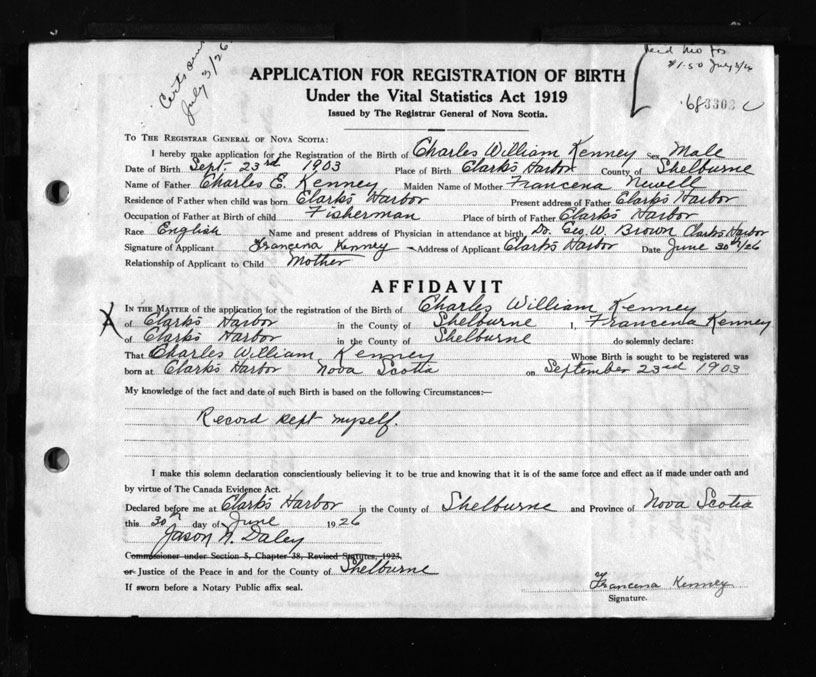 Certs
July 3/26
$1.50 July 3/26
683303 C
APPLICATION FOR REGISTRATION OF BIRTH
Under the Vital Statistics Act 1919
Issued by The Registrar General of Nova Scotia.
To The Registrar General of Nova Scotia:
I hereby make application for the Registration of the Birth of Charles William Kenney Sex Male
Date of Birth Sept. 23rd 1903 Place of Birth Clark's Harbor County of Shelburne
Name of Father Charles E. Kenney Maiden Name of Mother Francena Newell
Residence of Father when child was born Clark's Harbor Present address of Father Clark's Harbor
Occupation of Father at Birth of child Fisherman Place of birth of Father Clark's Harbor
Race English Name and present address of Physician in attendance at birth Dr. Geo. W. Brown Clark's Harbor
Signature of Applicant Francena Kenney Address of Applicant Clark's Harbor Date June 30th/26
Relationship of Applicant to Child Mother
AFFIDAVIT
In the Matter of the application for the registration of the Birth of Charles William Kenney
X of Clark's Harbor in the County of Shelburne I, Francena Kenney
of Clark's Harbor in the County of Shelburne do solemnly declare:
That Charles William Kenney Whose Birth is sought to be registered was
born at Clark's Harbor Nova Scotia on September 23rd 1903
My knowledge of the fact and date of such Birth is based on the following Circumstances:—
Record kept myself.
I make this solemn declaration conscientiously believing it to be true and knowing that it is of the same force and effect as if made under oath and
by virtue of The Canada Evidence Act.
Declared before me at Clark's Harbor in the County of Shelburne and Province of Nova Scotia
this 30th day of June 1926
Jason N. Daley
Commissioner under Section 5, Chapter 38, Revised Statutes, 1923.
or Justice of the Peace in and for the County of Shelburne
If sworn before a Notary Public affix seal.
Francena Kenney
Signature.